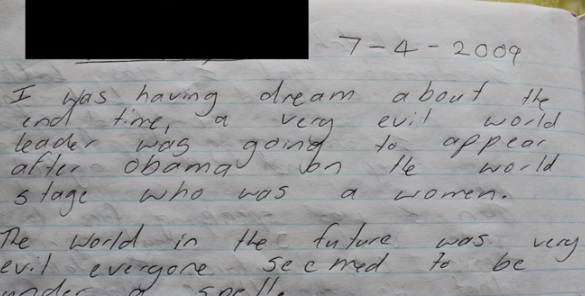 7-4-2009
I was having dream about the
end time, a very evil world
leader was going to appear
after Obama on the world
stage who was a women.
The world in the future was very
evil everyone seemed to be
under a spell.